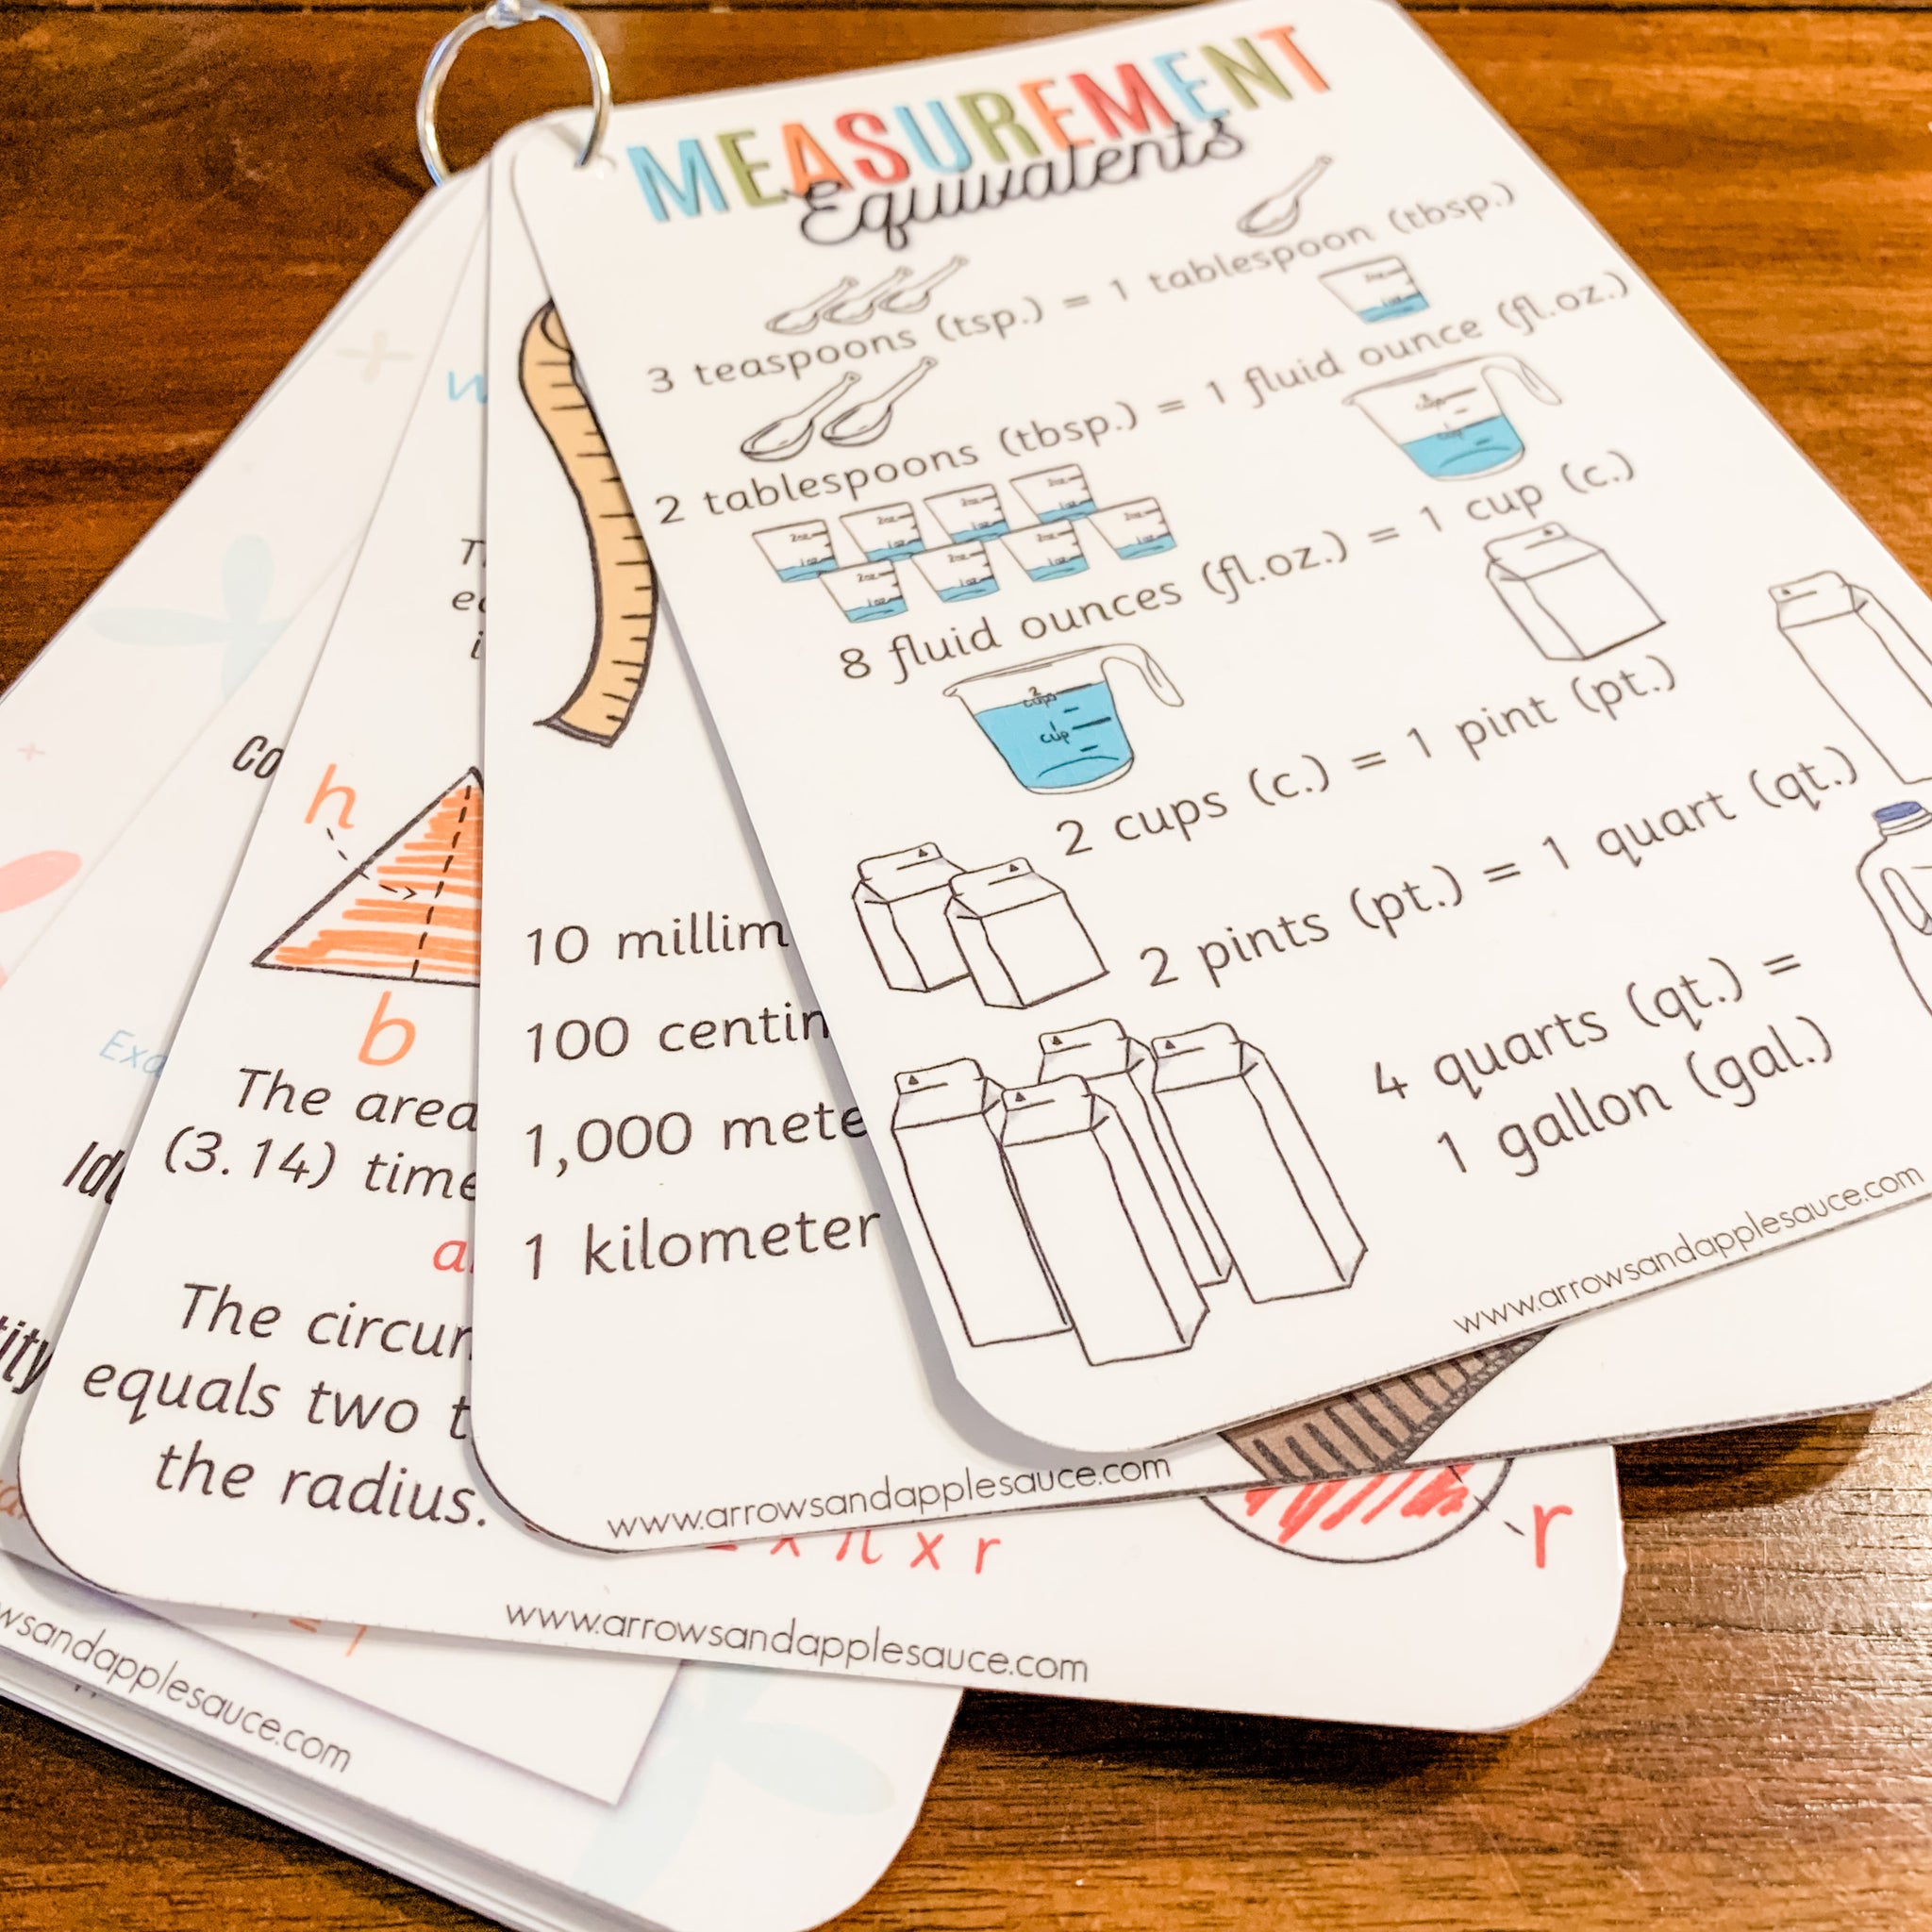 MEASUREMENT
Equivalents
3 teaspoons (tsp.) = 1 tablespoon (tbsp.)
2 tablespoons (tbsp.) = 1 fluid ounce (fl.oz.)
8 fluid ounces (fl.oz.) = 1 cup (c.)
2 cups (c.) = 1 pint (pt.)
2 pints (pt.) = 1 quart (qt.)
4 quarts (qt.) =
1 gallon (gal.)
www.arrowsandapplesauce.com
2 cups
1 cup
10 millim
100 centim
1,000 mete
1 kilometer
www.arrowsandapplesauce.com
h
b
The area
(3.14) time
The circum
equals two t
the radius.
x π x r
r
www.arrowsandapplesauce.com
wsandapplesauce.com